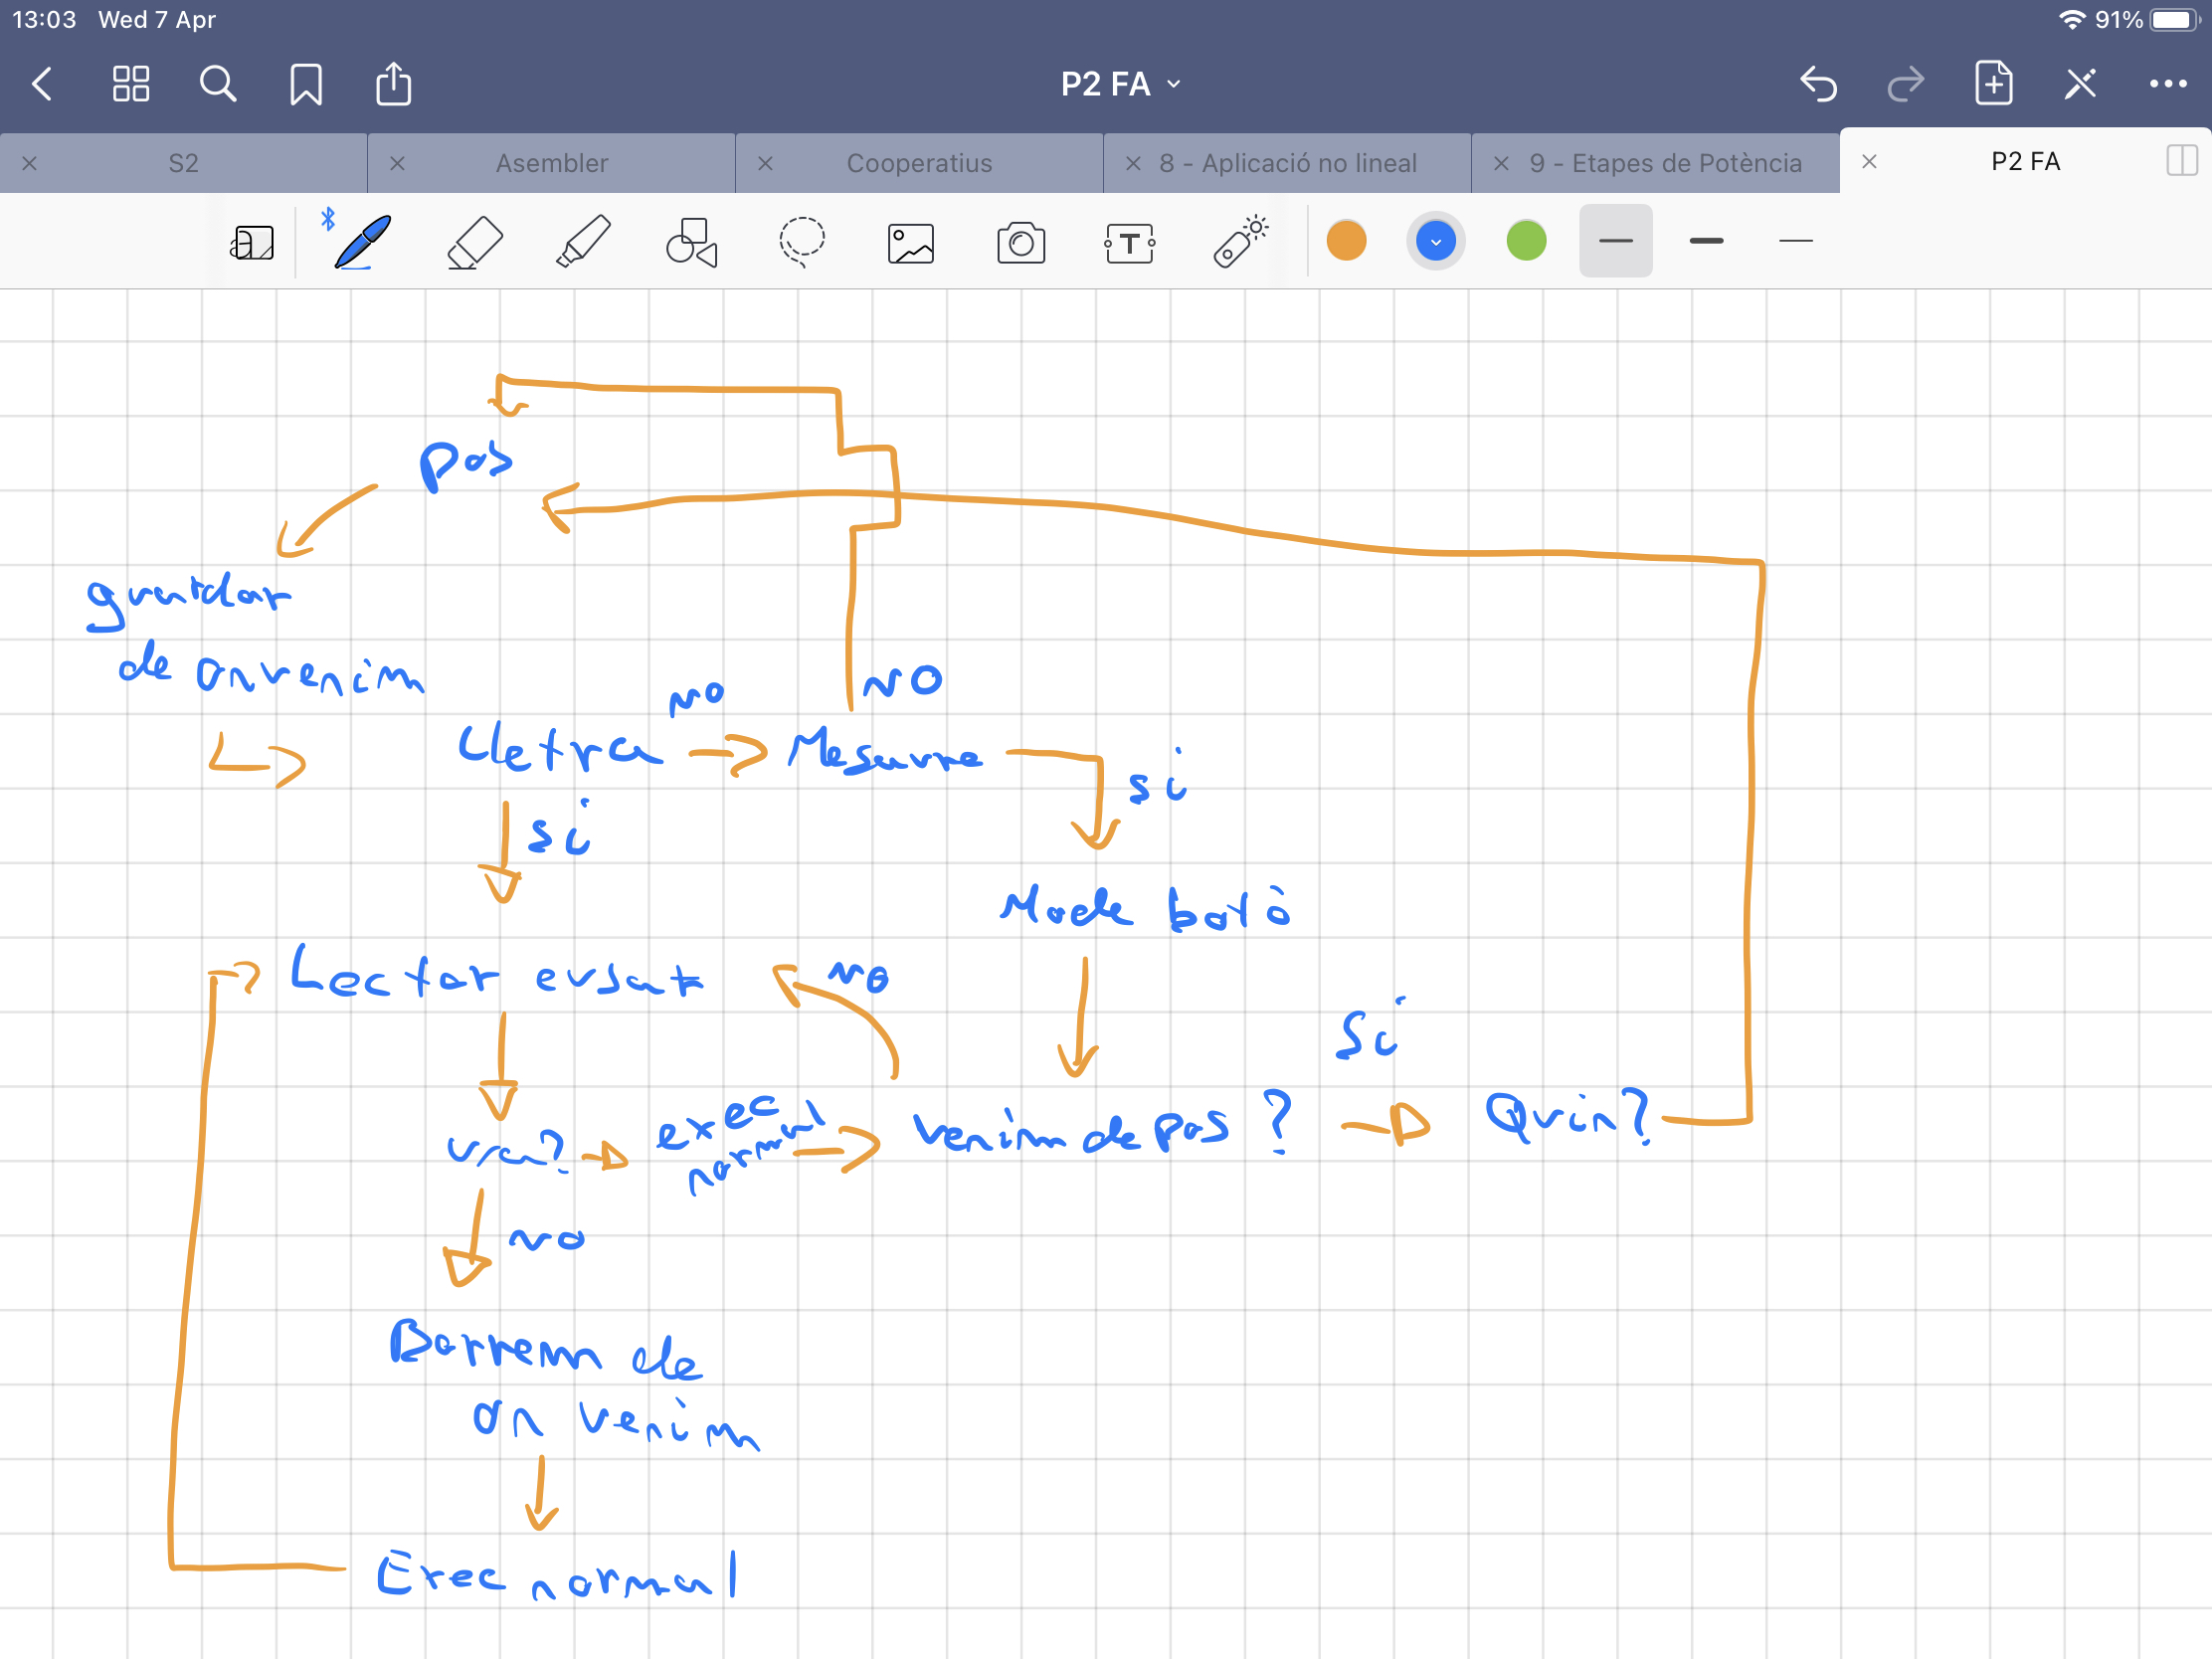 13:03 Wed 7 Apr 91%
P2 FA
S2 Asembler Cooperatius 8 - Aplicació no lineal 9 - Etapes de Potència P2 FA
T
Pos
guardar
de on venim
no NO
Lletra Mesurne si
si
Mode botó
Lector evsart no
Si
exec
v/a? normal Venim de pos ? Quin?
no
Borrem de
on venim
Exec normal